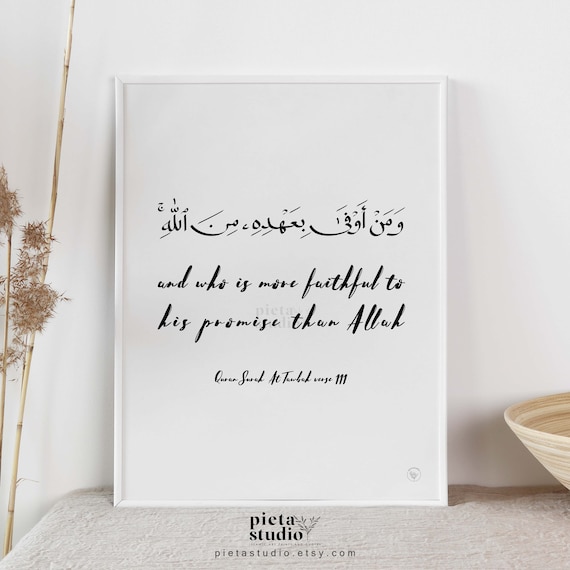 وَمَنْ أَوْفَىٰ بِعَهْدِهِۦ مِنَ ٱللَّهِ ۚ
and who is more faithful to
his promise than Allah
Quran Surah At Tawbah verse 111
pieta
studio
pieta
studio
pietastudio.etsy.com